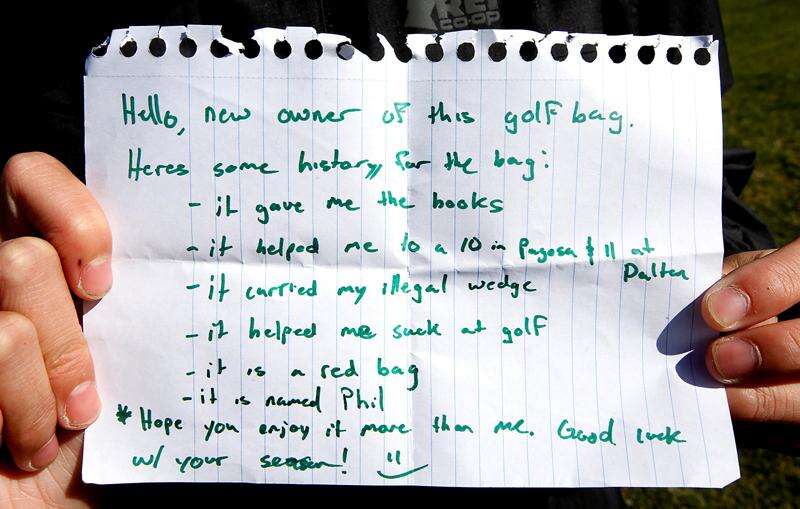 REI
CO·OP
Hello, new owner of this golf bag.
Heres some history for the bag:
- it gave me the books
- it helped me to a 10 in Pagosa & 11 at
Dalton
- it carried my illegal wedge
- it helped me suck at golf
- it is a red bag
- it is named Phil
* Hope you enjoy it more than me. Good luck
w/ your season!